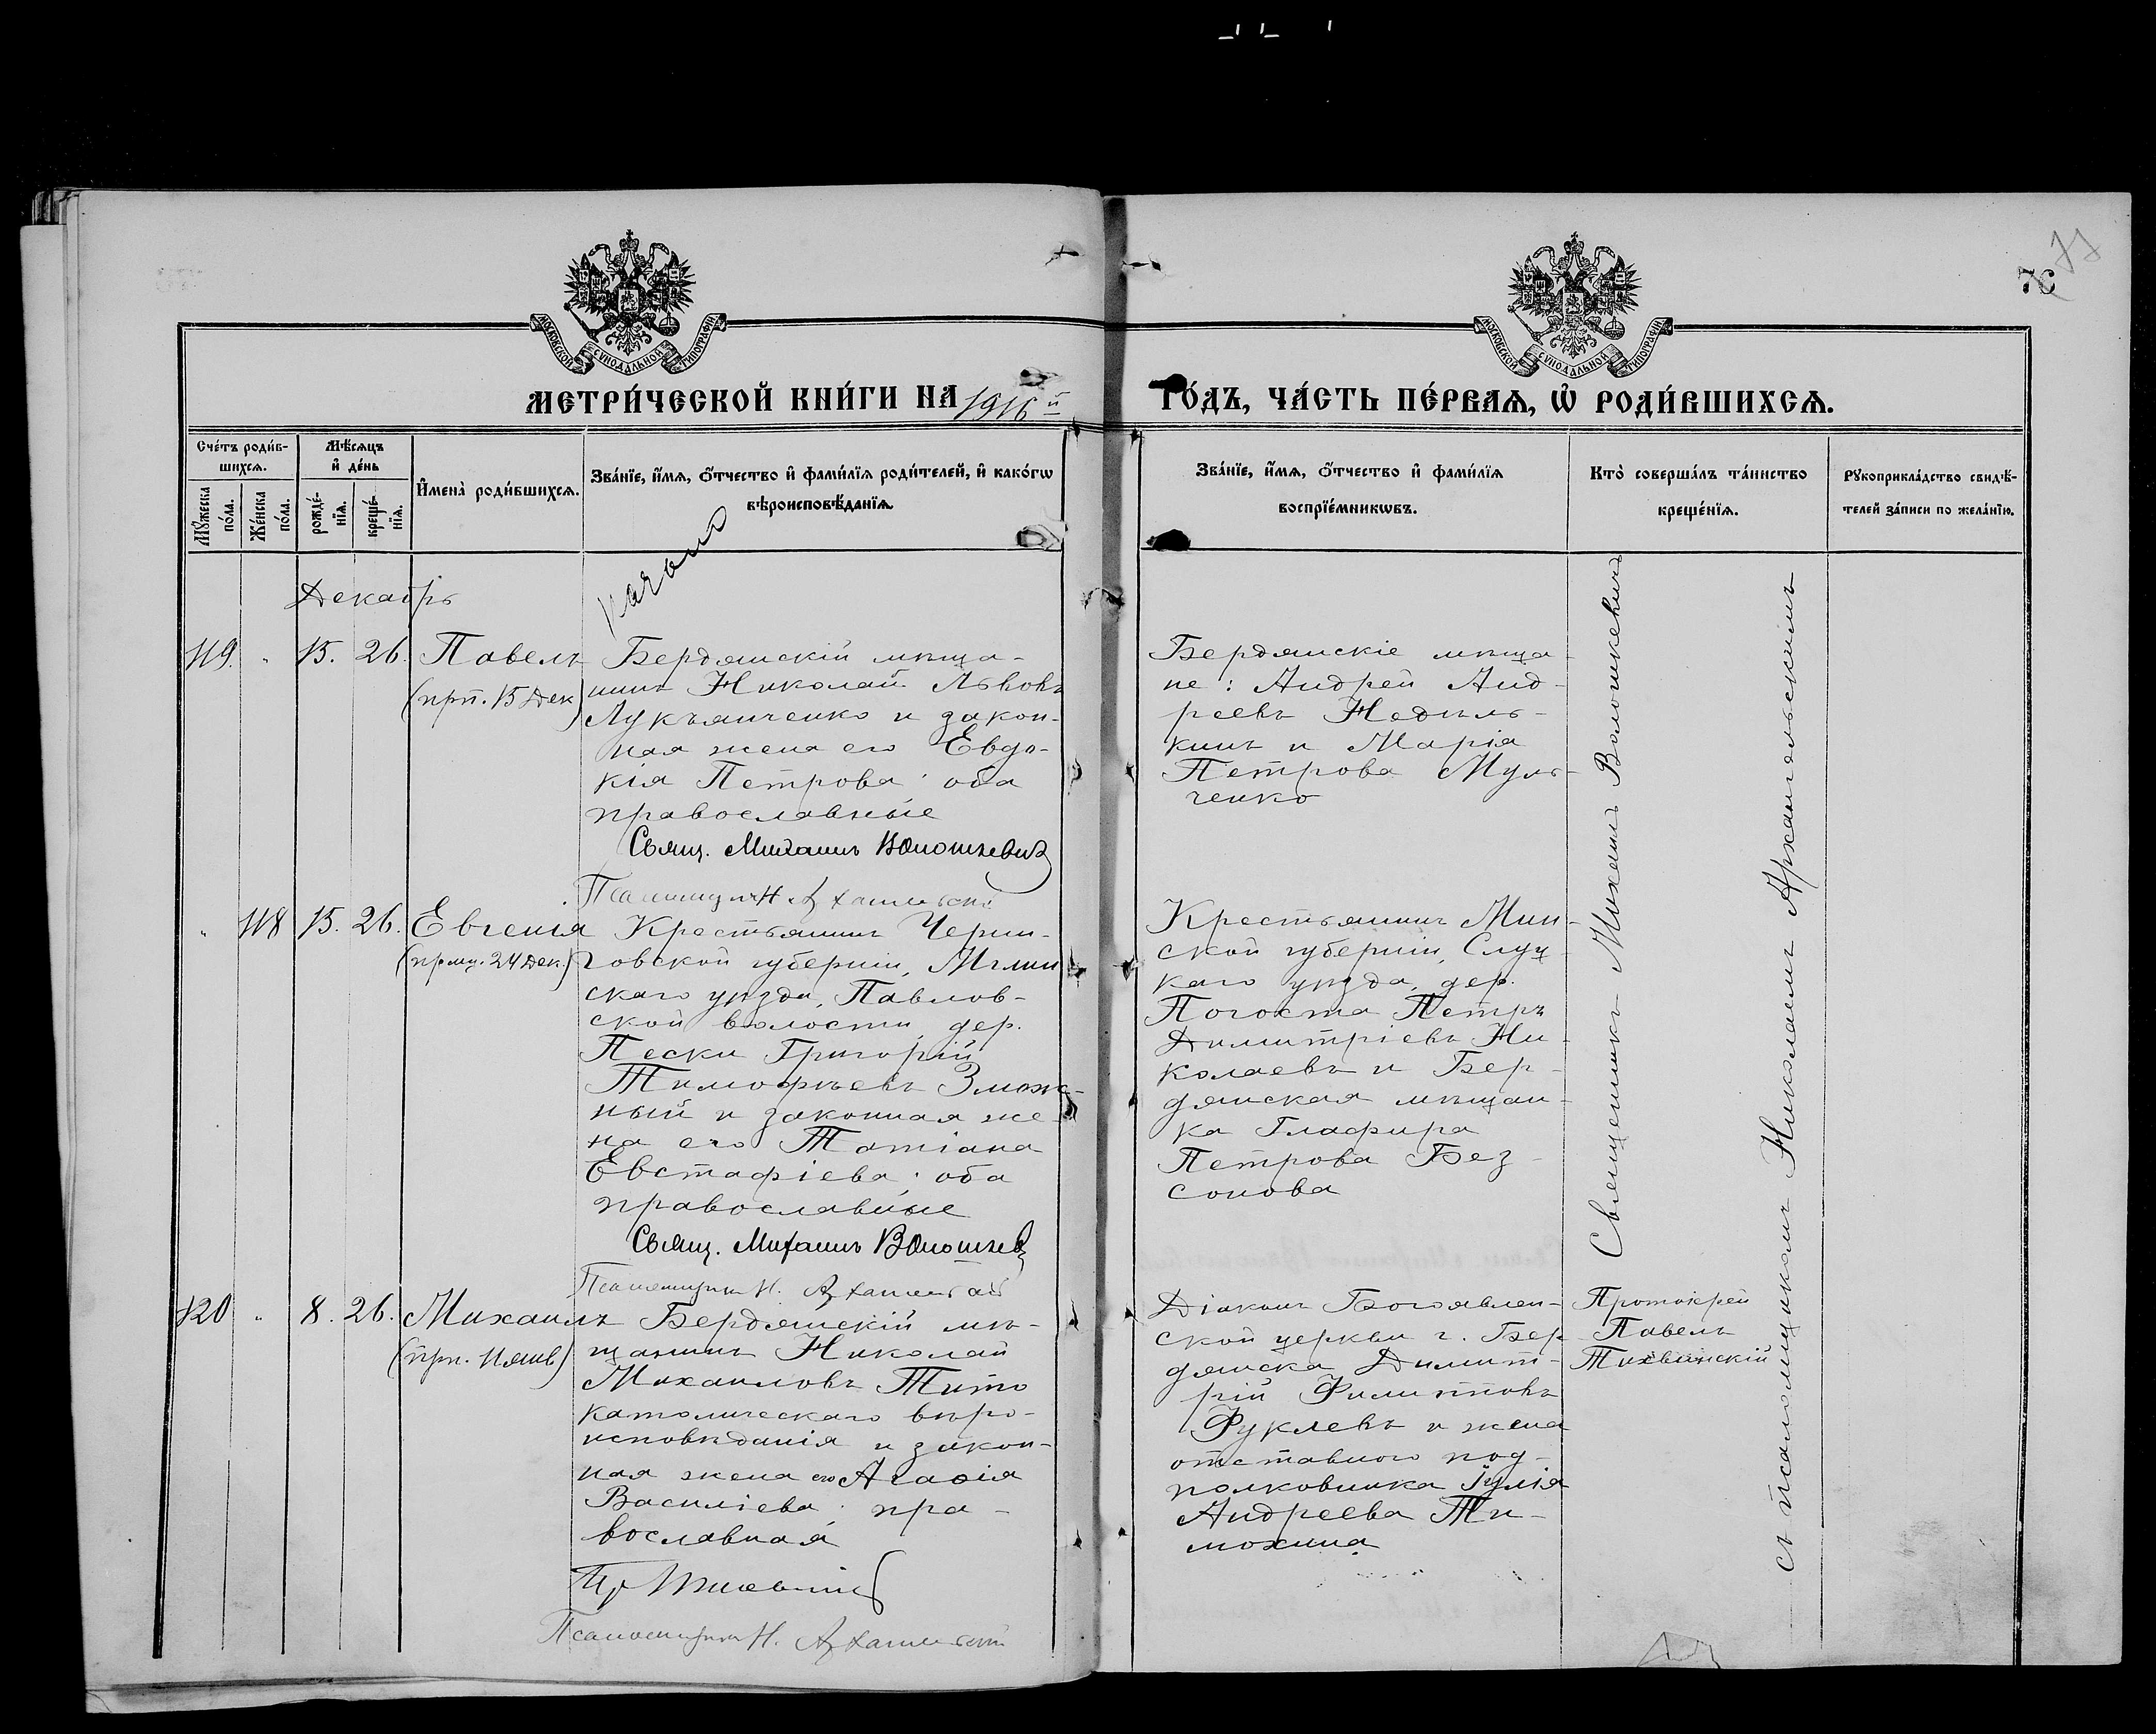 МОСКОВСКОЙ СУНОДАЛЬНОЙ ТИПОГРАФІИ
МОСКОВСКОЙ СУНОДАЛЬНОЙ ТИПОГРАФІИ
МЕТРИ́ЧЕСКОЙ КНИ́ГИ НА 1916й ГО́ДЪ, ЧА́СТЬ ПЕ́РВАѦ, Ѽ РОДИ́ВШИХСѦ.
Сче́тъ роди́в-
шихсѧ.
Мꙋ́жеска
по́ла.
Же́нска
по́ла.
Мѣ́сѧцъ
и҆ де́нь
рожде́-
нїѧ.
креще́-
нїѧ.
И҆мена̀ роди́вшихсѧ.
Зва́нїе, и҆́мѧ, ѻ҆́тчество и҆ фами́лїѧ роди́телей, и҆ како́гѡ
вѣроисповѣ́данїѧ.
Зва́нїе, и҆́мѧ, ѻ҆́тчество и҆ фами́лїѧ
воспрїе́мникѡвъ.
Кто̀ соверша́лъ та́инство
креще́нїѧ.
Рꙋкоприкла́дство свидѣ́-
телей за́писи по жела́нїю.
Декабрь
119. " 15. 26. Павелъ
(прп. 15 Дек)
Бердянскій мѣща-
нинъ Николай Львовъ
Лукьянченко и закон-
ная жена его Евдо-
кія Петрова; оба
православные
Свящ. Михаилъ Волошкевичъ
Псаломщикъ Н. Архангельскій
Бердянскіе мѣща-
не: Андрей Анд-
реевъ Недѣль-
кинъ и Марія
Петрова Муль-
ченко
Священникъ Михаилъ Волошкевичъ
съ псаломщикомъ Николаемъ Архангельскимъ
" 118 15. 26. Евгенія
(прмц. 24 Дек.)
Крестьянинъ Черни-
говской губерніи, Мглин
скаго уѣзда, Павлов-
ской волости, дер.
Пески Григорій
Тимофѣевъ Змаж-
ный и законная же-
на его Татіана
Евстафіева; оба
православные
Свящ. Михаилъ Волошкев
Псаломщикъ Н. Архангельскій
Крестьянинъ Мин-
ской губерніи, Слуц-
каго уѣзда, дер.
Погоста Петръ
Димитріевъ Ни-
колаевъ и Бер-
дянская мѣщан-
ка Глафира
Петрова Без-
сонова
120 " 8. 26. Михаилъ
(прп. 11 янв)
Бердянскій мѣ-
щанинъ Николай
Михаиловъ Тито
католическаго вѣро-
исповѣданія и закон-
ная жена его Агаѳія
Василіева; пра-
вославная
Псаломщикъ Н. Архангельскій
Діаконъ Богоявлен-
ской церкви г. Бер-
дянска Димит-
рій Филипповъ
Фуклевъ и жена
отставного под-
полковника Іулія
Андреева Ти-
мохина
Протоіерей
Павелъ
Тихвинскій